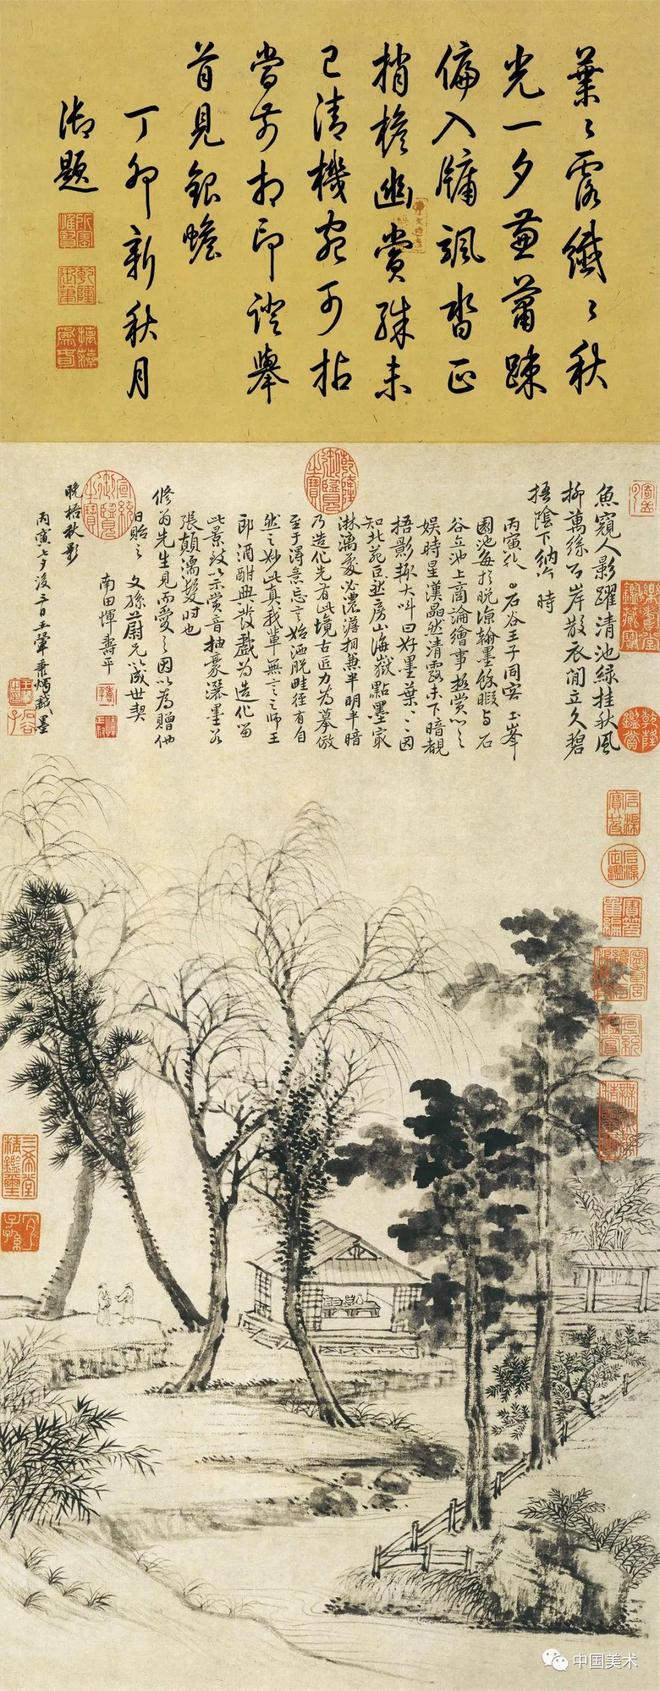 葉〻露纖〻秋
光一夕兼蕭疎
偏入牖颯沓正
捎檐幽賞殊未
已清機宛可拈
當前相印證舉
首見銀蟾
丁卯新秋月
御題
乾隆御覽之寶
魚窺人影躍清池綠挂秋風
柳萬絲石岸散衣閒立久碧
梧陰下納涼時
丙寅秋石谷王子同客玉峯
園池每於晚涼翰墨餘暇與石
谷立池上商論繪事極賞心之
娛時星漢晶然清露未下暗覩
梧影輒大叫曰好墨葉〻因
知北苑巨然房山海嶽點墨最
淋漓處必濃澹相兼半明半暗
乃造化先有此境古匠力為摹倣
至于得意忘言始洒脫畦徑有自
然之妙此真我輩無言之師王
郎酒酣興發戲為造化留
此景致以示賞音抽豪灑墨若
張顛濡髮時也
修翁先生見而愛之因以為贈他
日貽之 文孫蔚元以成世契
南田惲壽平
晚梧秋影
丙寅七夕後三日王翬秉燭戲墨
宣統御覽之寶
乾隆鑑賞
石渠寶笈
三希堂精鑑璽
宜子孫
中国美术